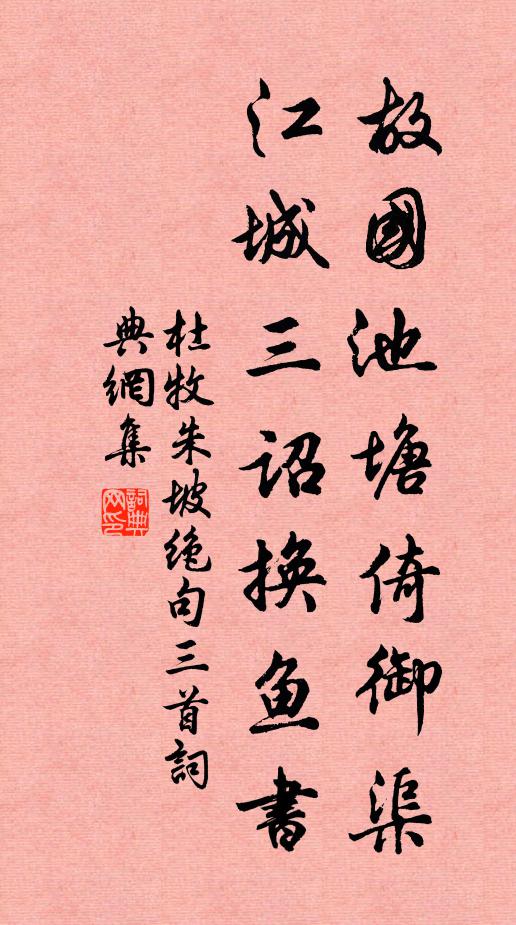 故國池塘倚御渠
江城三詔換鱼書
杜牧朱坡绝句三首詞
典網集
詞典網印